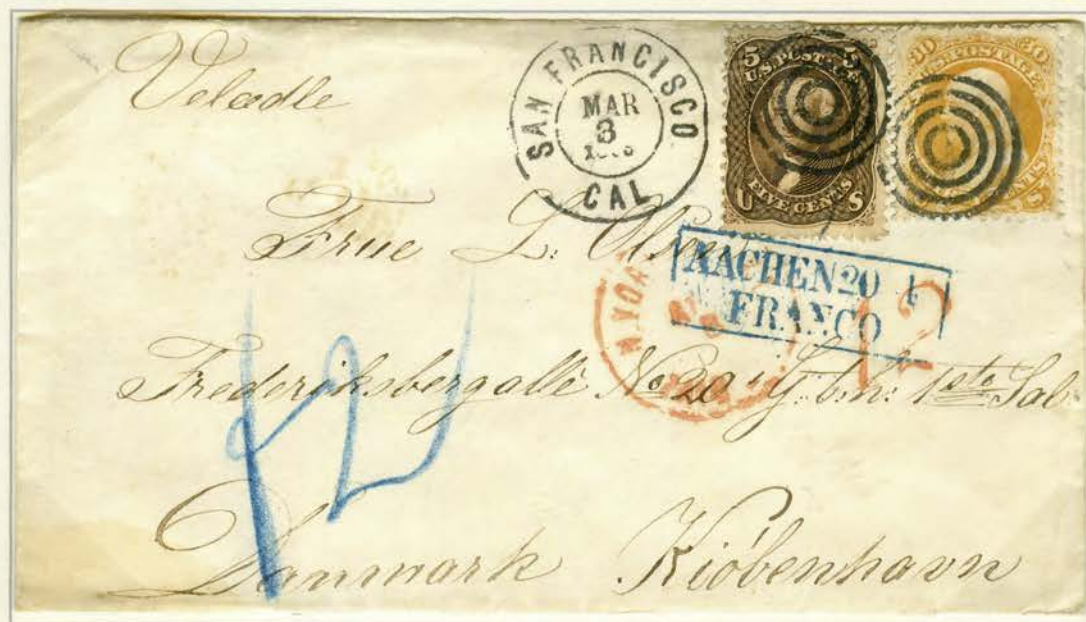 Velædle
SAN FRANCISCO
MAR
3
CAL
5 5
U.S. POSTAGE
U FIVE CENTS S
30 30
U.S. POSTAGE
CENTS
Frue L. Olsen
AACHEN 20 4
FRANCO
N. YORK
12
Frederiksbergallé No 20 1ste Sal
12
Danmark Kiöbenhavn